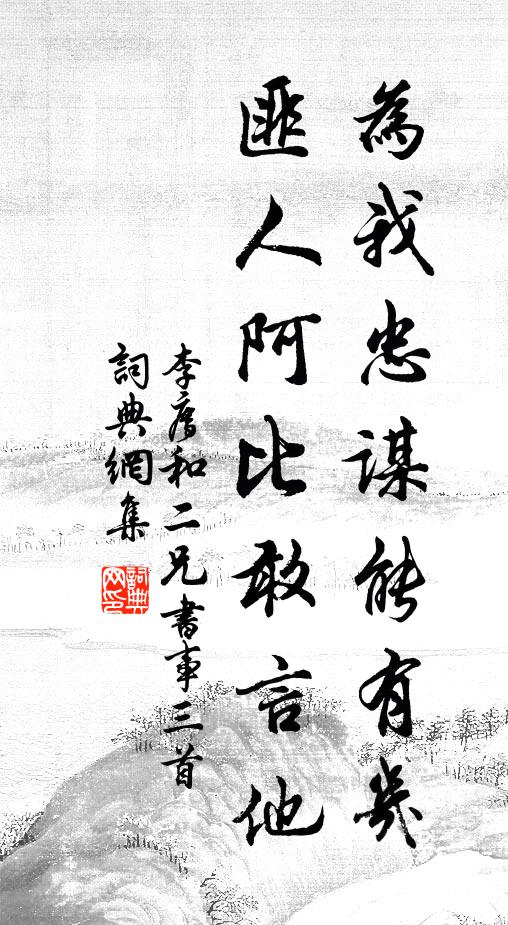 為我忠謀能有幾
匪人阿比敢言他
李廌和二兄書事三首
詞典網集
詞典網印